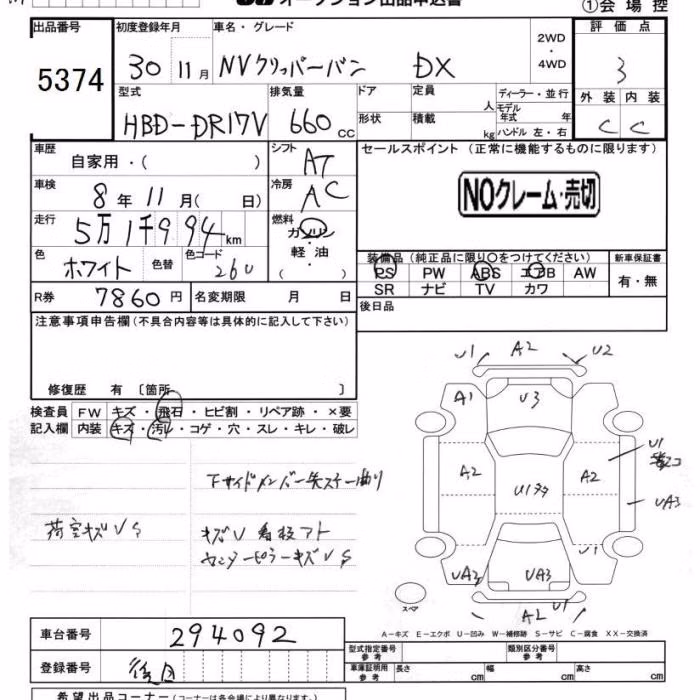 オークション出品申込書
①会場控
出品番号 初度登録年月 車名・グレード 評価点
5374 30 11月 NVクリッパーバン DX 2WD ・ 4WD 3
型式 排気量 ドア 定員 ディーラー・並行 外装 内装
HBD-DR17V 660cc 人 モデル年式 年 C C
形状 積載 kg ハンドル 左・右
車歴 自家用・( ) シフト AT セールスポイント(正常に機能するものに限ります)
車検 8年11月( 日) 冷房 AC NOクレーム・売切
走行 5万1千994km 燃料 ガソリン
軽油
( )
色 ホワイト 色替 色コード 26U 装備品(純正品に限り○をつけてください) 新車保証書
PS PW ABS エアB AW 有・無
SR ナビ TV カワ
R券 7860円 名変期限 月 日 後日品
注意事項申告欄(不具合内容等は具体的に記入して下さい)
修復歴 有 〔箇所 〕
検査員 FW キズ・飛石・ヒビ割・リペア跡・×要
記入欄 内装 キズ・汚レ・コゲ・穴・スレ・キレ・破レ
U1 A2 U2
A1 U3 A1
A2 U1タタ A2 U1
UA3
UA2 UA3 U1
A2 U1
スペア
下サイドメンバー先ステー曲り
荷室キズVS キズU 看板アト
センターピラーキズVS
A-キズ E-エクボ U-凹み W-補修跡 S-サビ C-腐食 XX-交換済
車台番号 294092 型式指定番号 参考 類別区分番号 参考
登録番号 後日 車庫証明用 参考 長さ cm 幅 cm 高さ cm
希望出品コーナー(コーナーは各会場により異なります)